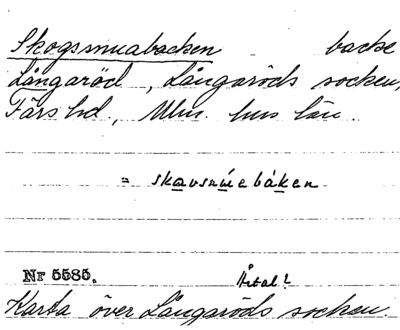 Skogsmuabacken backe
Långaröd, Långaröds socken,
Färs hd., Mlm. hus län.
= skavsmúebáken
Nr 5585. Årtal?
Karta över Långaröds socken.